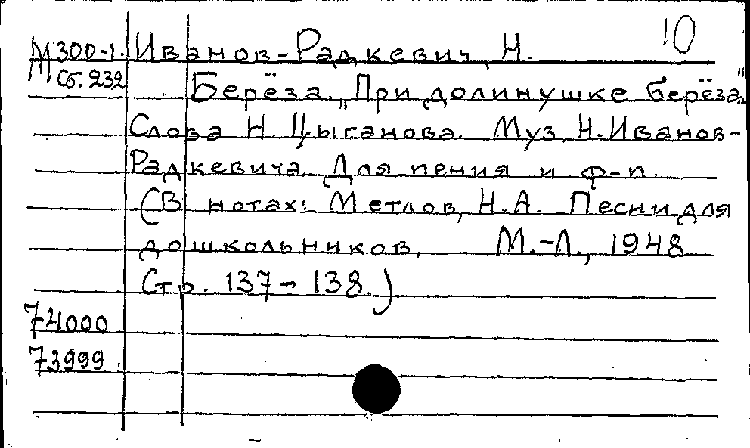 10
М300-1. Иванов-Радкевич, Н.
Сб. 232 Берёза. „При долинушке берёза"
Слова Н. Цыганова. Муз. Н. Иванов-
Радкевича. Для пения и ф-п.
(В нотах: Метлов, Н.А. Песни для
дошкольников. М.-Л., 1948
Стр. 137-138.)
74000
73999